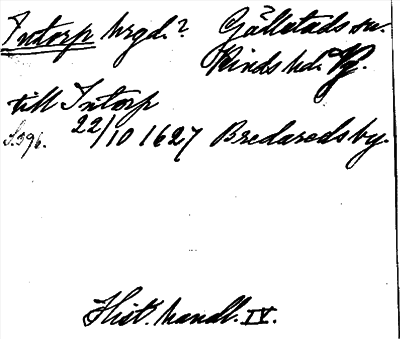 Intorp hrgd.? Gällstads sn.
Kinds hd. Vg.
till Intorp
S.396. 22/10 1627 Bredareds by.
Hist. handl. IV.